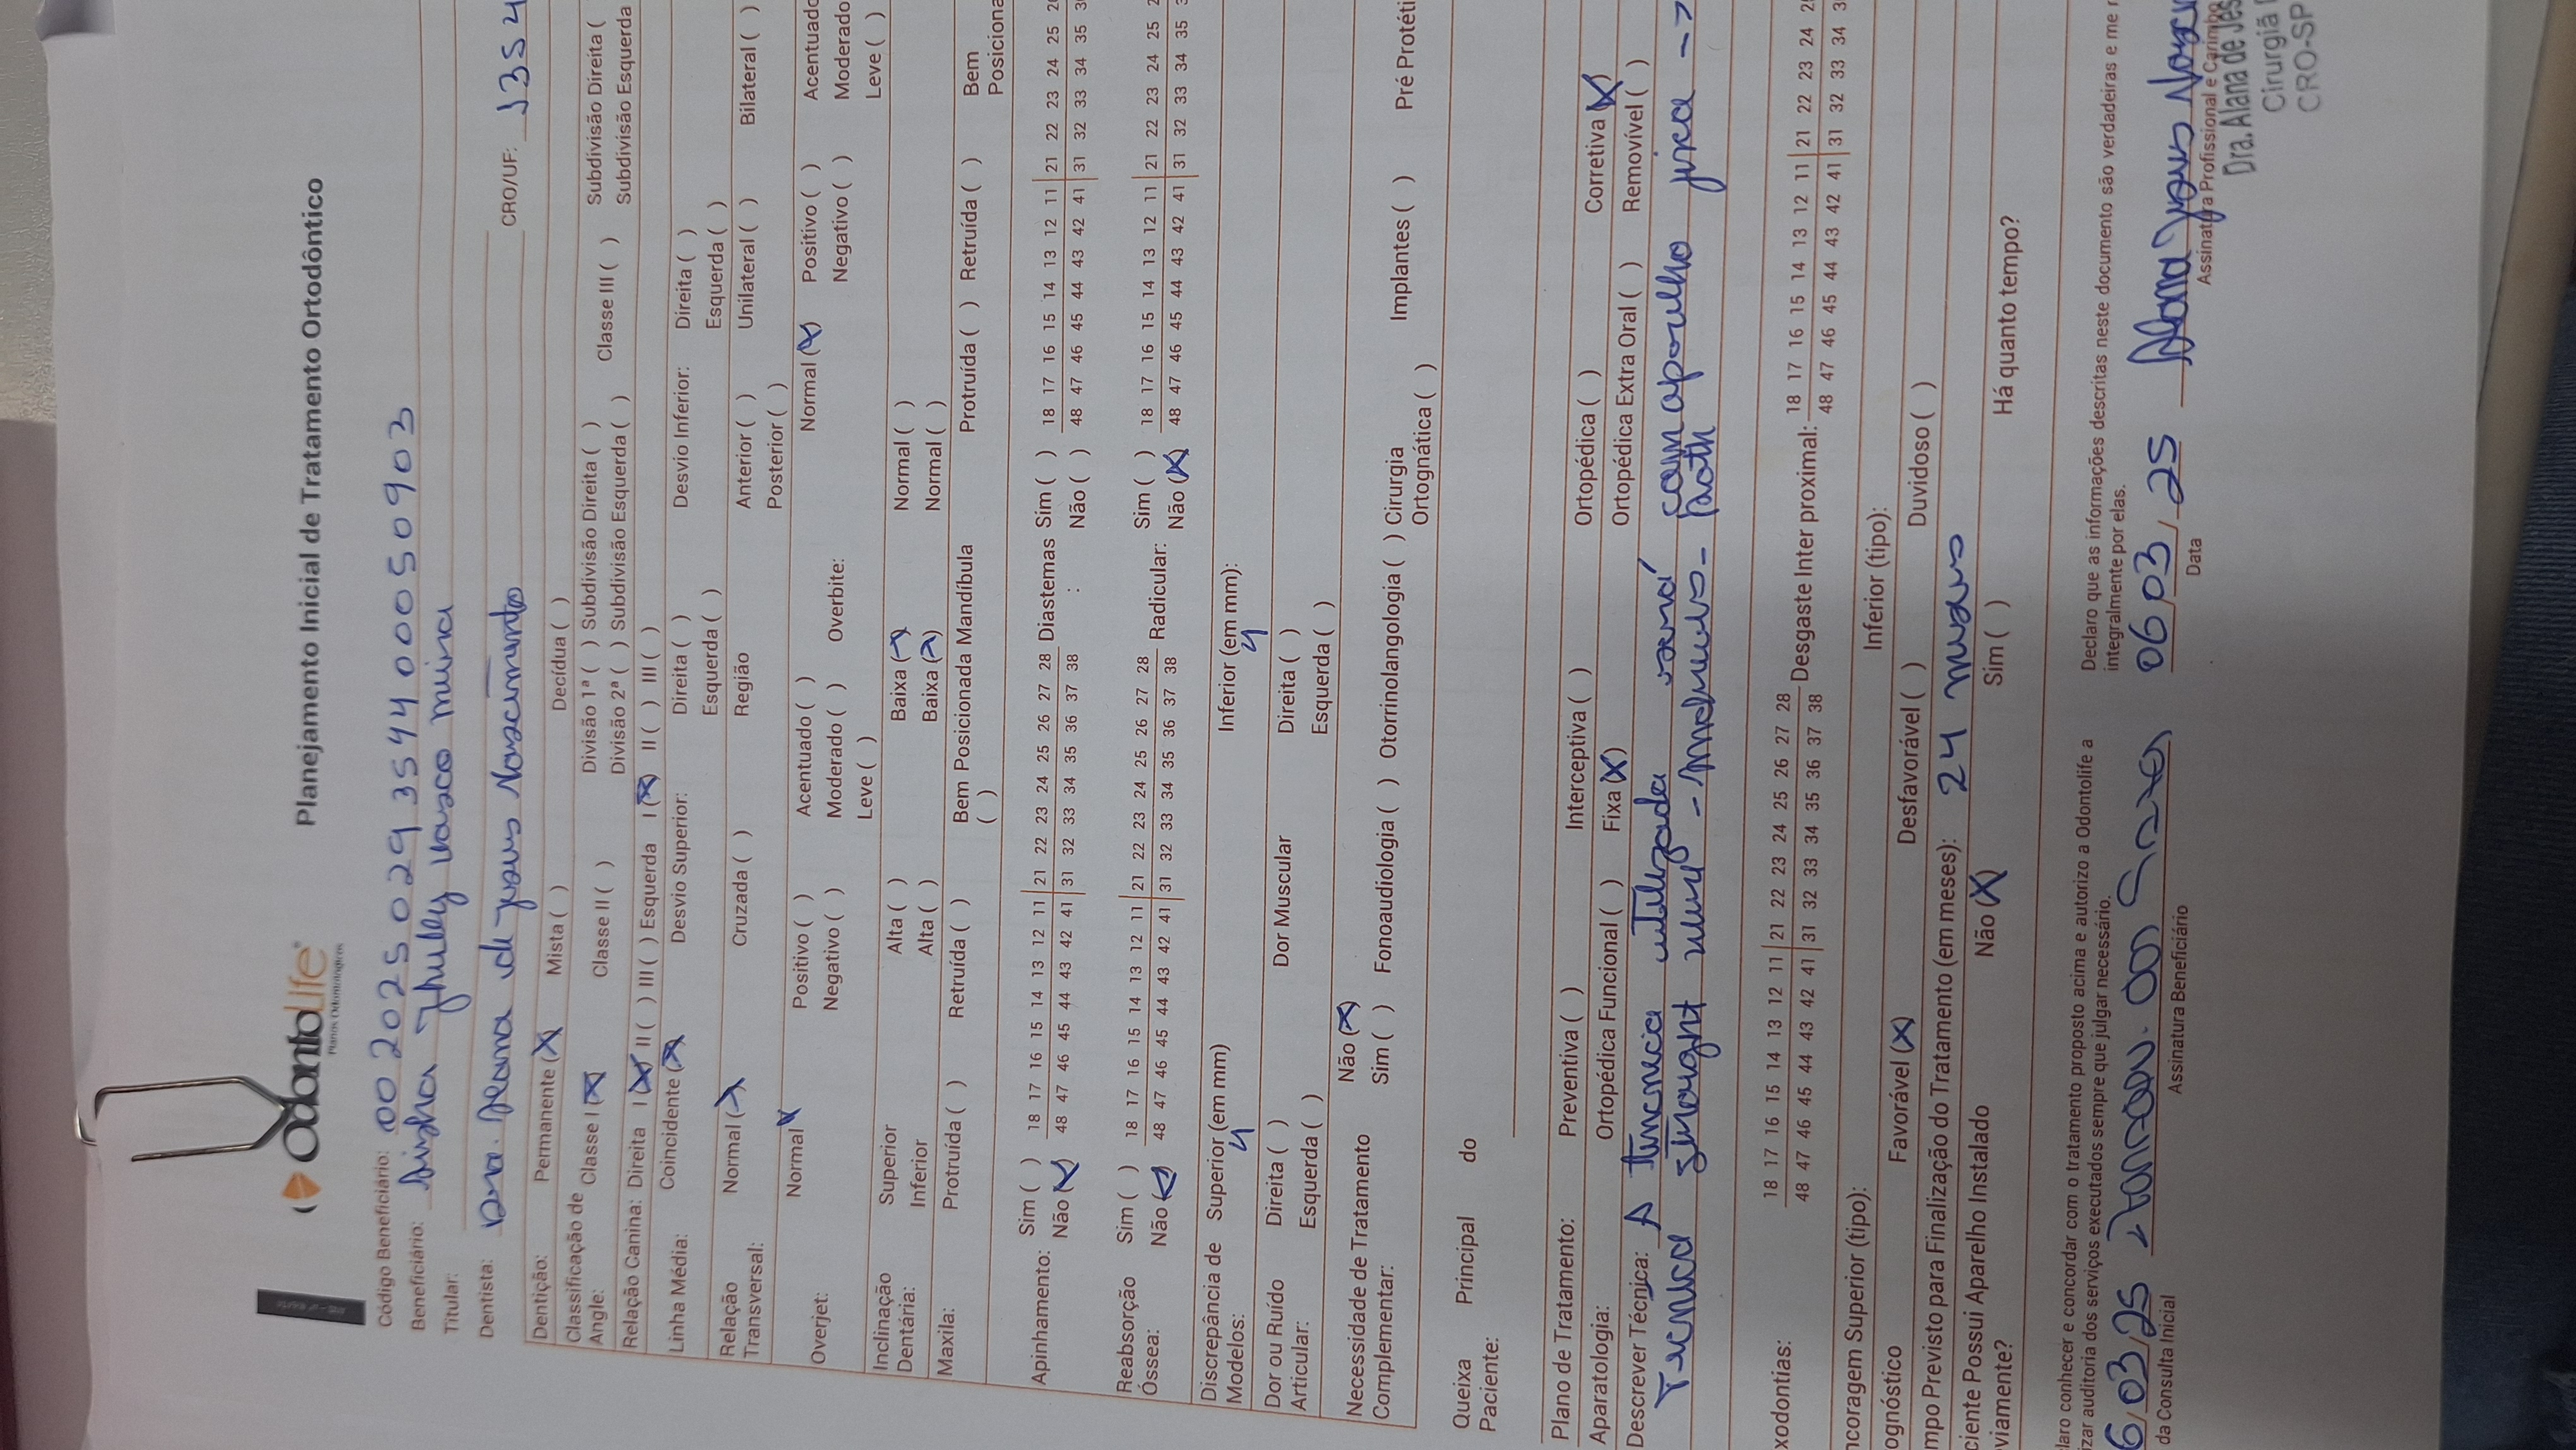 OdontoLife
Planos Odontológicos
Planejamento Inicial de Tratamento Ortodôntico
Código Beneficiário: 00 2025 029 3544 0005 0903
Beneficiário:
Titular:
Dentista: Dra. Alana de Jesus Nascimento CRO/UF:
Dentição: Permanente (X) Mista ( ) Decídua ( )
Classificação de Angle: Classe I (X) Classe II ( ) Divisão 1ª ( ) Subdivisão Direita ( ) Classe III ( ) Subdivisão Direita (
Divisão 2ª ( ) Subdivisão Esquerda ( ) Subdivisão Esquerda
Relação Canina: Direita I (X) II ( ) III ( ) Esquerda I (X) II ( ) III ( )
Linha Média: Coincidente (X) Desvio Superior: Direita ( ) Desvio Inferior: Direita ( )
Esquerda ( ) Esquerda ( )
Relação Transversal: Normal (X) Cruzada ( ) Região Anterior ( ) Unilateral ( ) Bilateral ( )
Posterior ( )
Overjet: Normal X Positivo ( ) Acentuado ( ) Overbite: Normal (X) Positivo ( ) Acentuado
Negativo ( ) Moderado ( ) Negativo ( ) Moderado
Leve ( ) Leve ( )
Inclinação Dentária: Superior Alta ( ) Baixa (X) Normal ( )
Inferior Alta ( ) Baixa (X) Normal ( )
Maxila: Protruída ( ) Retruída ( ) Bem Posicionada ( ) Mandíbula Protruída ( ) Retruída ( ) Bem Posiciona
Apinhamento: Sim ( ) 18 17 16 15 14 13 12 11 | 21 22 23 24 25 26 27 28 Diastemas : Sim ( ) 18 17 16 15 14 13 12 11 | 21 22 23 24 25
Não (X) 48 47 46 45 44 43 42 41 | 31 32 33 34 35 36 37 38 Não ( ) 48 47 46 45 44 43 42 41 | 31 32 33 34 35
Reabsorção Óssea: Sim ( ) 18 17 16 15 14 13 12 11 | 21 22 23 24 25 26 27 28 Radicular: Sim ( ) 18 17 16 15 14 13 12 11 | 21 22 23 24 25
Não (X) 48 47 46 45 44 43 42 41 | 31 32 33 34 35 36 37 38 Não (X) 48 47 46 45 44 43 42 41 | 31 32 33 34 35
Discrepância de Modelos: Superior (em mm) 4 Inferior (em mm): 4
Dor ou Ruído Articular: Direita ( ) Dor Muscular Direita ( )
Esquerda ( ) Esquerda ( )
Necessidade de Tratamento Complementar: Não (X)
Sim ( ) Fonoaudiologia ( ) Otorrinolangologia ( ) Cirurgia Ortognática ( ) Implantes ( ) Pré Protéti
Queixa Principal do Paciente:
Plano de Tratamento: Preventiva ( ) Interceptiva ( ) Ortopédica ( ) Corretiva (X)
Aparatologia: Ortopédica Funcional ( ) Fixa (X) Ortopédica Extra Oral ( ) Removível ( )
Descrever Técnica: A técnica utilizada será com aparelho fixa ->
Técnica
xodontias: 18 17 16 15 14 13 12 11 | 21 22 23 24 25 26 27 28 Desgaste Inter proximal: 18 17 16 15 14 13 12 11 | 21 22 23 24
48 47 46 45 44 43 42 41 | 31 32 33 34 35 36 37 38 48 47 46 45 44 43 42 41 | 31 32 33 34
ncoragem Superior (tipo): Inferior (tipo):
ognóstico Favorável (X) Desfavorável ( ) Duvidoso ( )
mpo Previsto para Finalização do Tratamento (em meses): 24 meses
ciente Possui Aparelho Instalado Não (X) Sim ( ) Há quanto tempo?
viamente?
laro conhecer e concordar com o tratamento proposto acima e autorizo a Odontolife a
izar auditoria dos serviços executados sempre que julgar necessário.
Declaro que as informações descritas neste documento são verdadeiras e me r
integralmente por elas.
6/03/25 06/03/25
da Consulta Inicial Assinatura Beneficiário Data Assinatura Profissional e Carimbo
Dra. Alana de Jes
Cirurgiã
CRO-SP